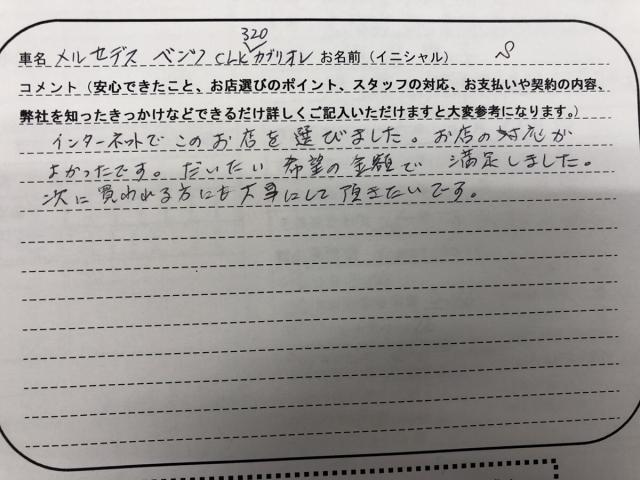 320
車名 メルセデス ベンツ CLKカブリオレ お名前（イニシャル） S
コメント（安心できたこと、お店選びのポイント、スタッフの対応、お支払いや契約の内容、
弊社を知ったきっかけなどできるだけ詳しくご記入いただけますと大変参考になります。）
インターネットでこのお店を選びました。お店の対応が
よかったです。だいたい希望の金額で満足しました。
次に買われる方にも大事にして頂きたいです。